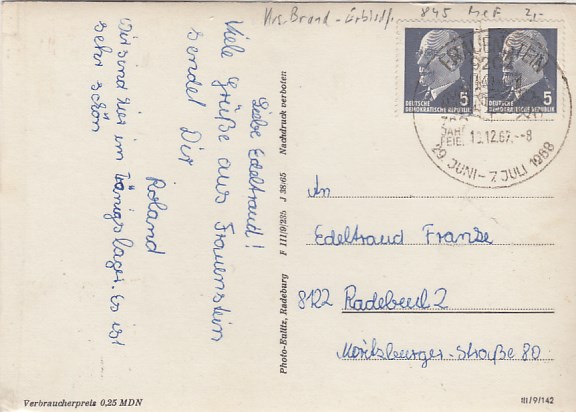 845 MeF 2,-
DEUTSCHE
DEMOKRATISCHE REPUBLIK
5
DEUTSCHE
DEMOKRATISCHE REPUBLIK
5
FRAUENSTEIN
JAHR
FEIER
12.67.--8
29. JUNI - 7. JULI 1968
Liebe Edeltraud!
Viele Grüße aus Frauenstein
sendet Dir
Roland
Wir sind hier im Trainigslager. Es ist
sehr schön
Nachdruck verboten
J 38/65
F III/9/235
Photo-Eulitz, Radeburg
An
Edeltraud Franze
8122 Radebeul 2
Moritzburger-Straße 80
Verbraucherpreis 0,25 MDN
III/9/142